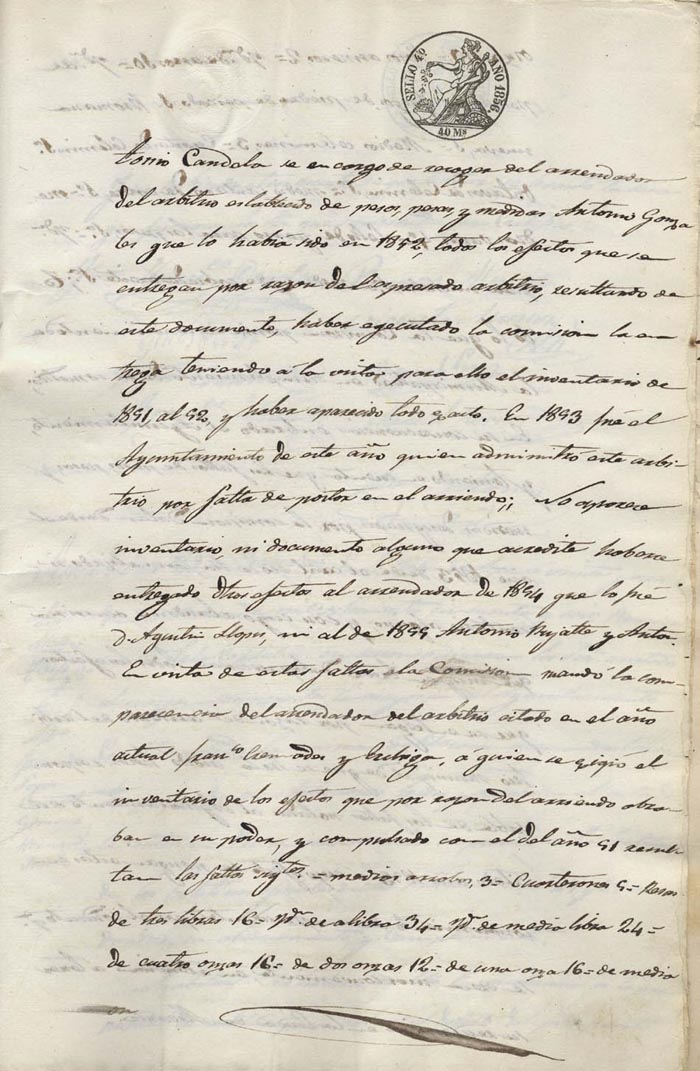 SELLO 4º AÑO 1856.
40 Ms
tonio Candela se encargo de recoger del arrendador
del arbitrio establecido de pesos, pesas y medidas Antonio Gonza
les que lo habia sido en 1852, todos los efectos que se
entregan por razon del espresado arbitrio, resultando de
este documento, haber egecutado la comision la en
trega teniendo á la vista para ello el inventario de
1851 al 52, y haber aparecido todo exacto. En 1853 fué el
Ayuntamiento de este año quien administró este arbi-
trio por falta de postor en el arriendo; No aparece
inventario, ni documento alguno que acredite haberse
entregado dhos efectos al arrendador de 1854 que lo fué
D. Agustin Llopis, ni al de 1855 Antonio y Antor.
En vista de estas faltas la Comision mandó la com-
parecencia del arrendador del arbitrio citado en el año
actual Franco Cremades y, á quien se egigió el
inventario de los efectos que por razon del arriendo obra-
ban en su poder, y compulsado con el del año 51 resul
tan las faltas sigtes. = medias arrobas, 3 = Cuarterones 5 = Pesas
de tres libras 16 = Yd. de a libra 34 = Yd. de media libra 24 =
de cuatro onzas 16 = de dos onzas 12 = de una onza 16 = de media
on